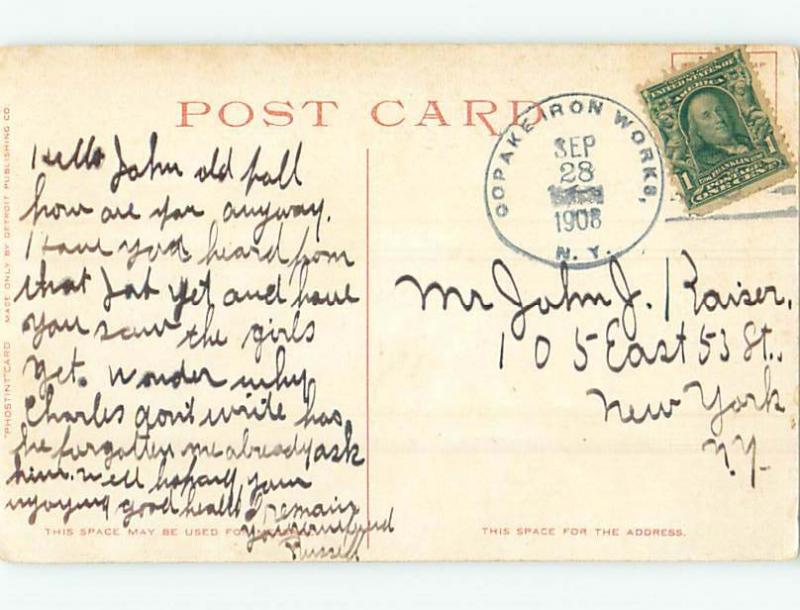 POST CARD
"PHOSTINT" CARD MADE ONLY BY DETROIT PUBLISHING CO.
COPAKE IRON WORKS,
SEP
28
1908
N. Y.
UNITED STATES OF
AMERICA
1 1
POSTAGE
ONE CENT
Hello John old pall
how are you anyway.
Have you heard from
that Job yet and have
you saw the girls
yet. Wonder why
Charles don't write has
he forgotten me already ask
him. Well hoping your
injoying good health I remain
your friend
Russell
Mr John J. Kaiser.
105 East 53 St.
New York
N.Y.
THIS SPACE MAY BE USED FO
THIS SPACE FOR THE ADDRESS.